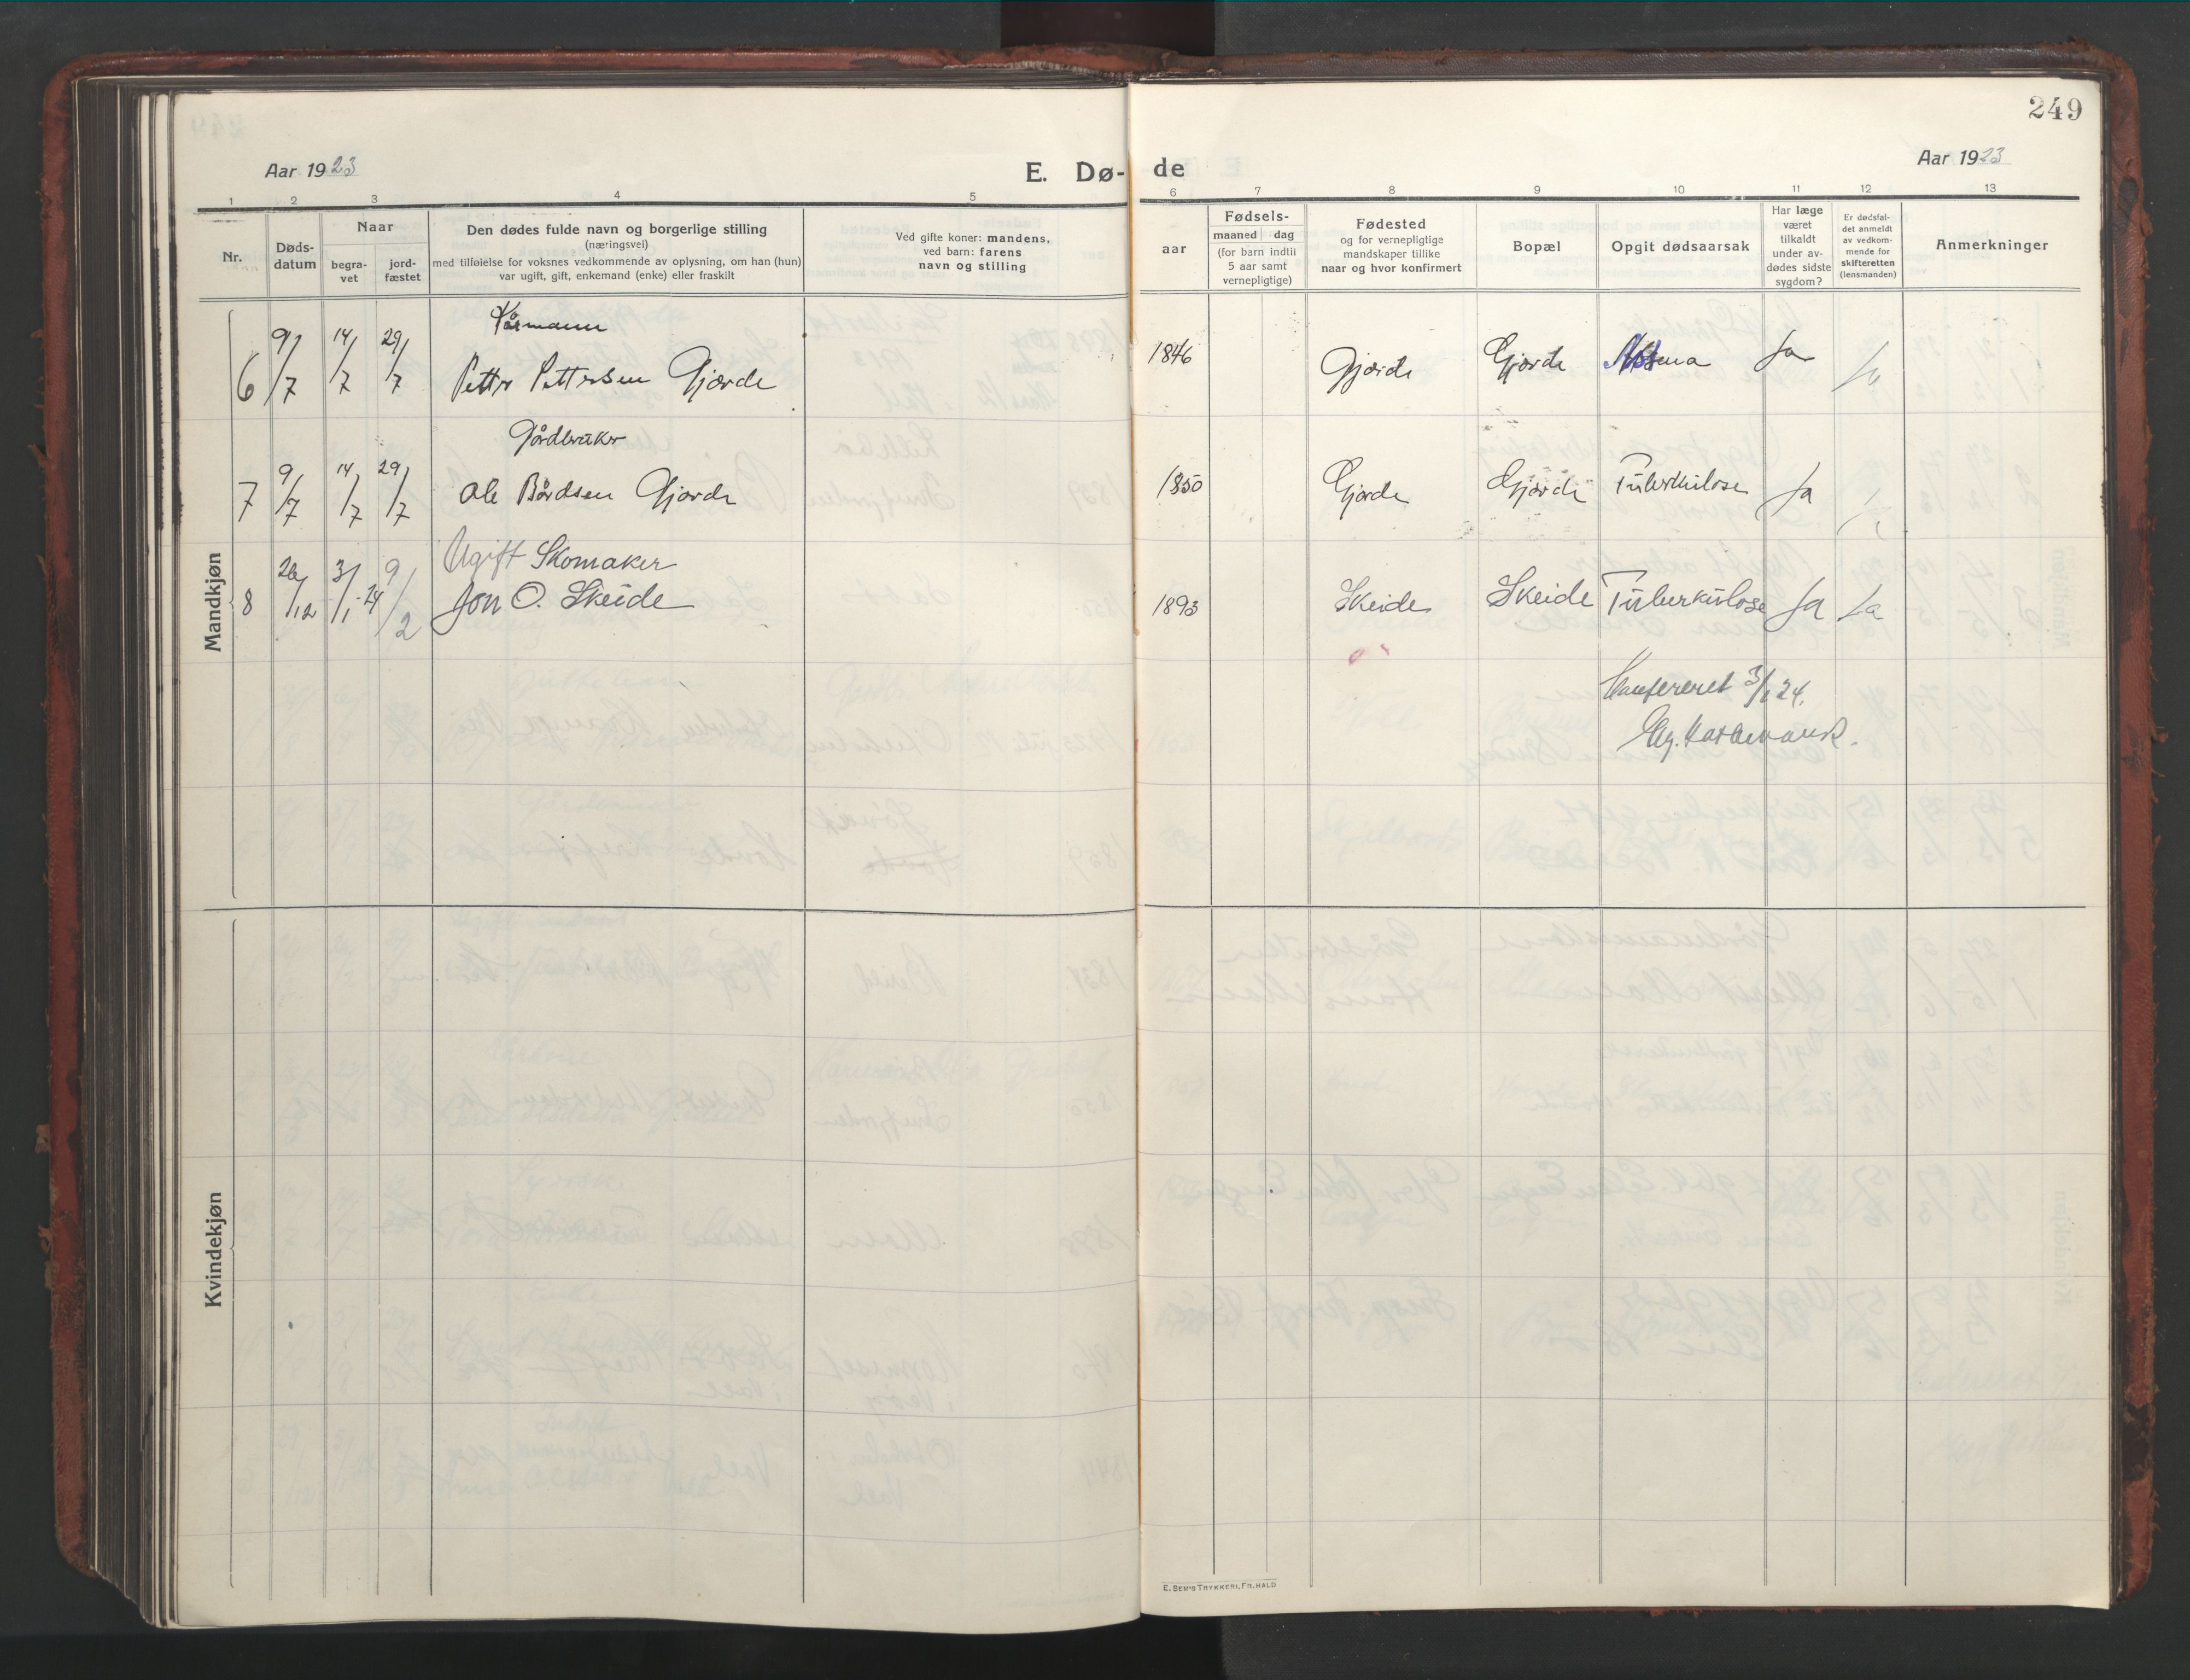 249
Aar 1923
E. Dø- de
Aar 1923
1 2 3 4 5 6 7 8 9 10 11 12 13
Nr.
Døds-
datum
Naar
begra-
vet
jord-
fæstet
Den dødes fulde navn og borgerlige stilling
(næringsvei)
med tilføielse for voksnes vedkommende av oplysning, om han (hun)
var ugift, gift, enkemand (enke) eller fraskilt
Ved gifte koner: mandens,
ved barn: farens
navn og stilling
aar
Fødsels-
maaned dag
(for barn indtil
5 aar samt
vernepligtige)
Fødested
og for vernepligtige
mandskaper tillike
naar og hvor konfirmert
Bopæl
Opgit dødsaarsak
Har læge
været
tilkaldt
under av-
dødes sidste
sygdom?
Er dødsfal-
det anmeldt
av vedkom-
mende for
skifteretten
(lensmanden)
Anmerkninger
Mandkjøn
Kårmann
6 9/7 14/7 29/7 Petter Pettersen Gjærde 1846 Gjærde Gjærde Astma Ja Ja
Gårdbruker
7 9/7 14/7 29/7 Ole Bårdsen Gjærde 1850 Gjærde Gjærde Tüberkülose Ja
Ugift Skomaker
8 26/12 3/1-24 9/2 Jon O. Skeide 1893 Skeide Skeide Tüberkülose Ja Ja
Konfereret 3/1 24.
Kvindekjøn
E. SEM'S TRYKKERI, FR. HALD